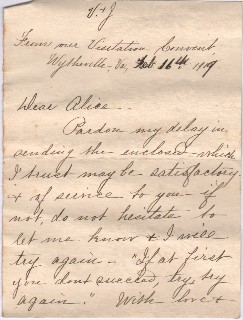 V. + J.
From our Visitation Convent,
Wytheville - Va. Feb 16th 1919
Dear Alice -
Pardon my delay in
sending the enclosed - which
I trust may be satisfactory
& of service to you - if
not, do not hesitate to
let me know & I will
try again - "If at first
you dont succeed, try, try
again." With love &